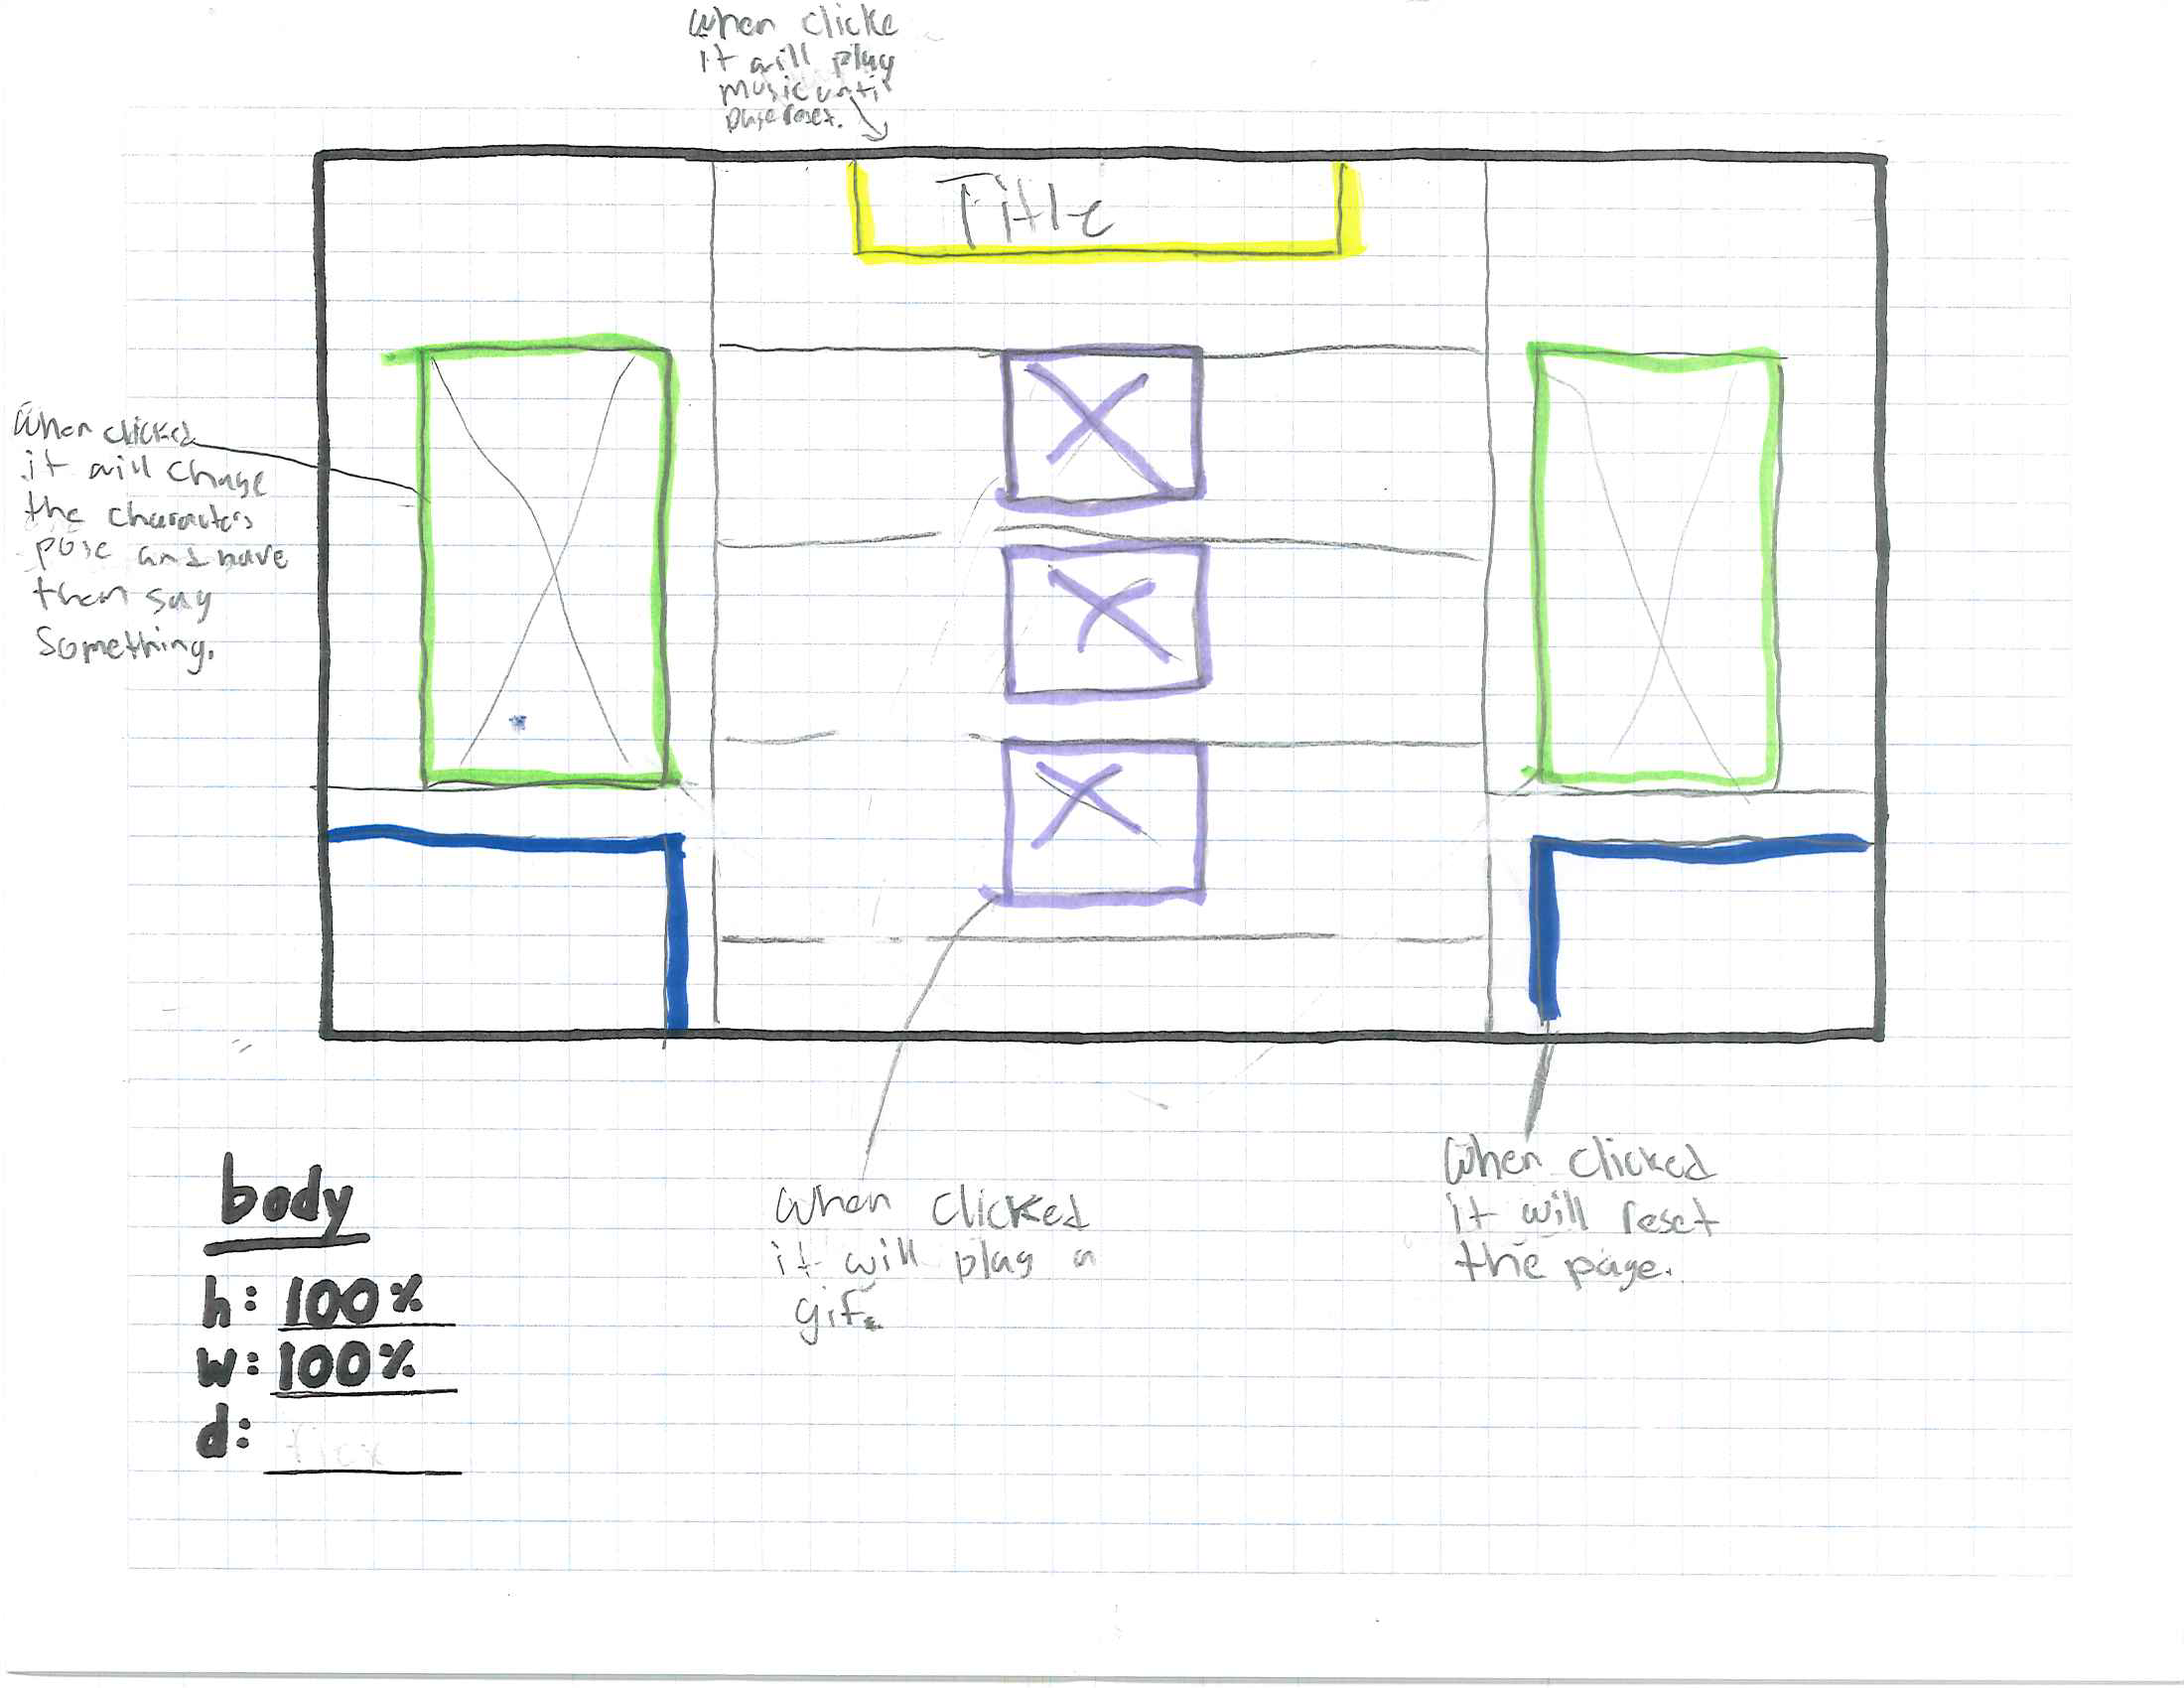 When clicke
it will play
music until
page reset.
Title
When clicked
it will chage
the characters
pose and have
them say
something.
When clicked
it will play a
gif.
When clicked
it will reset
the page.
body
h: 100%
w: 100%
d: flex